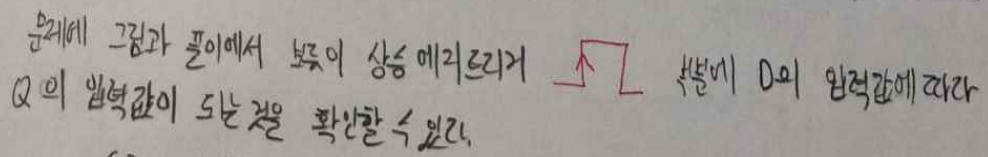 문제에 그림과 풀이에서 보듯이 상승 에리트리거 부분에 D의 입력값에 따라
Q의 입력값이 되는 것을 확인할 수 있다.